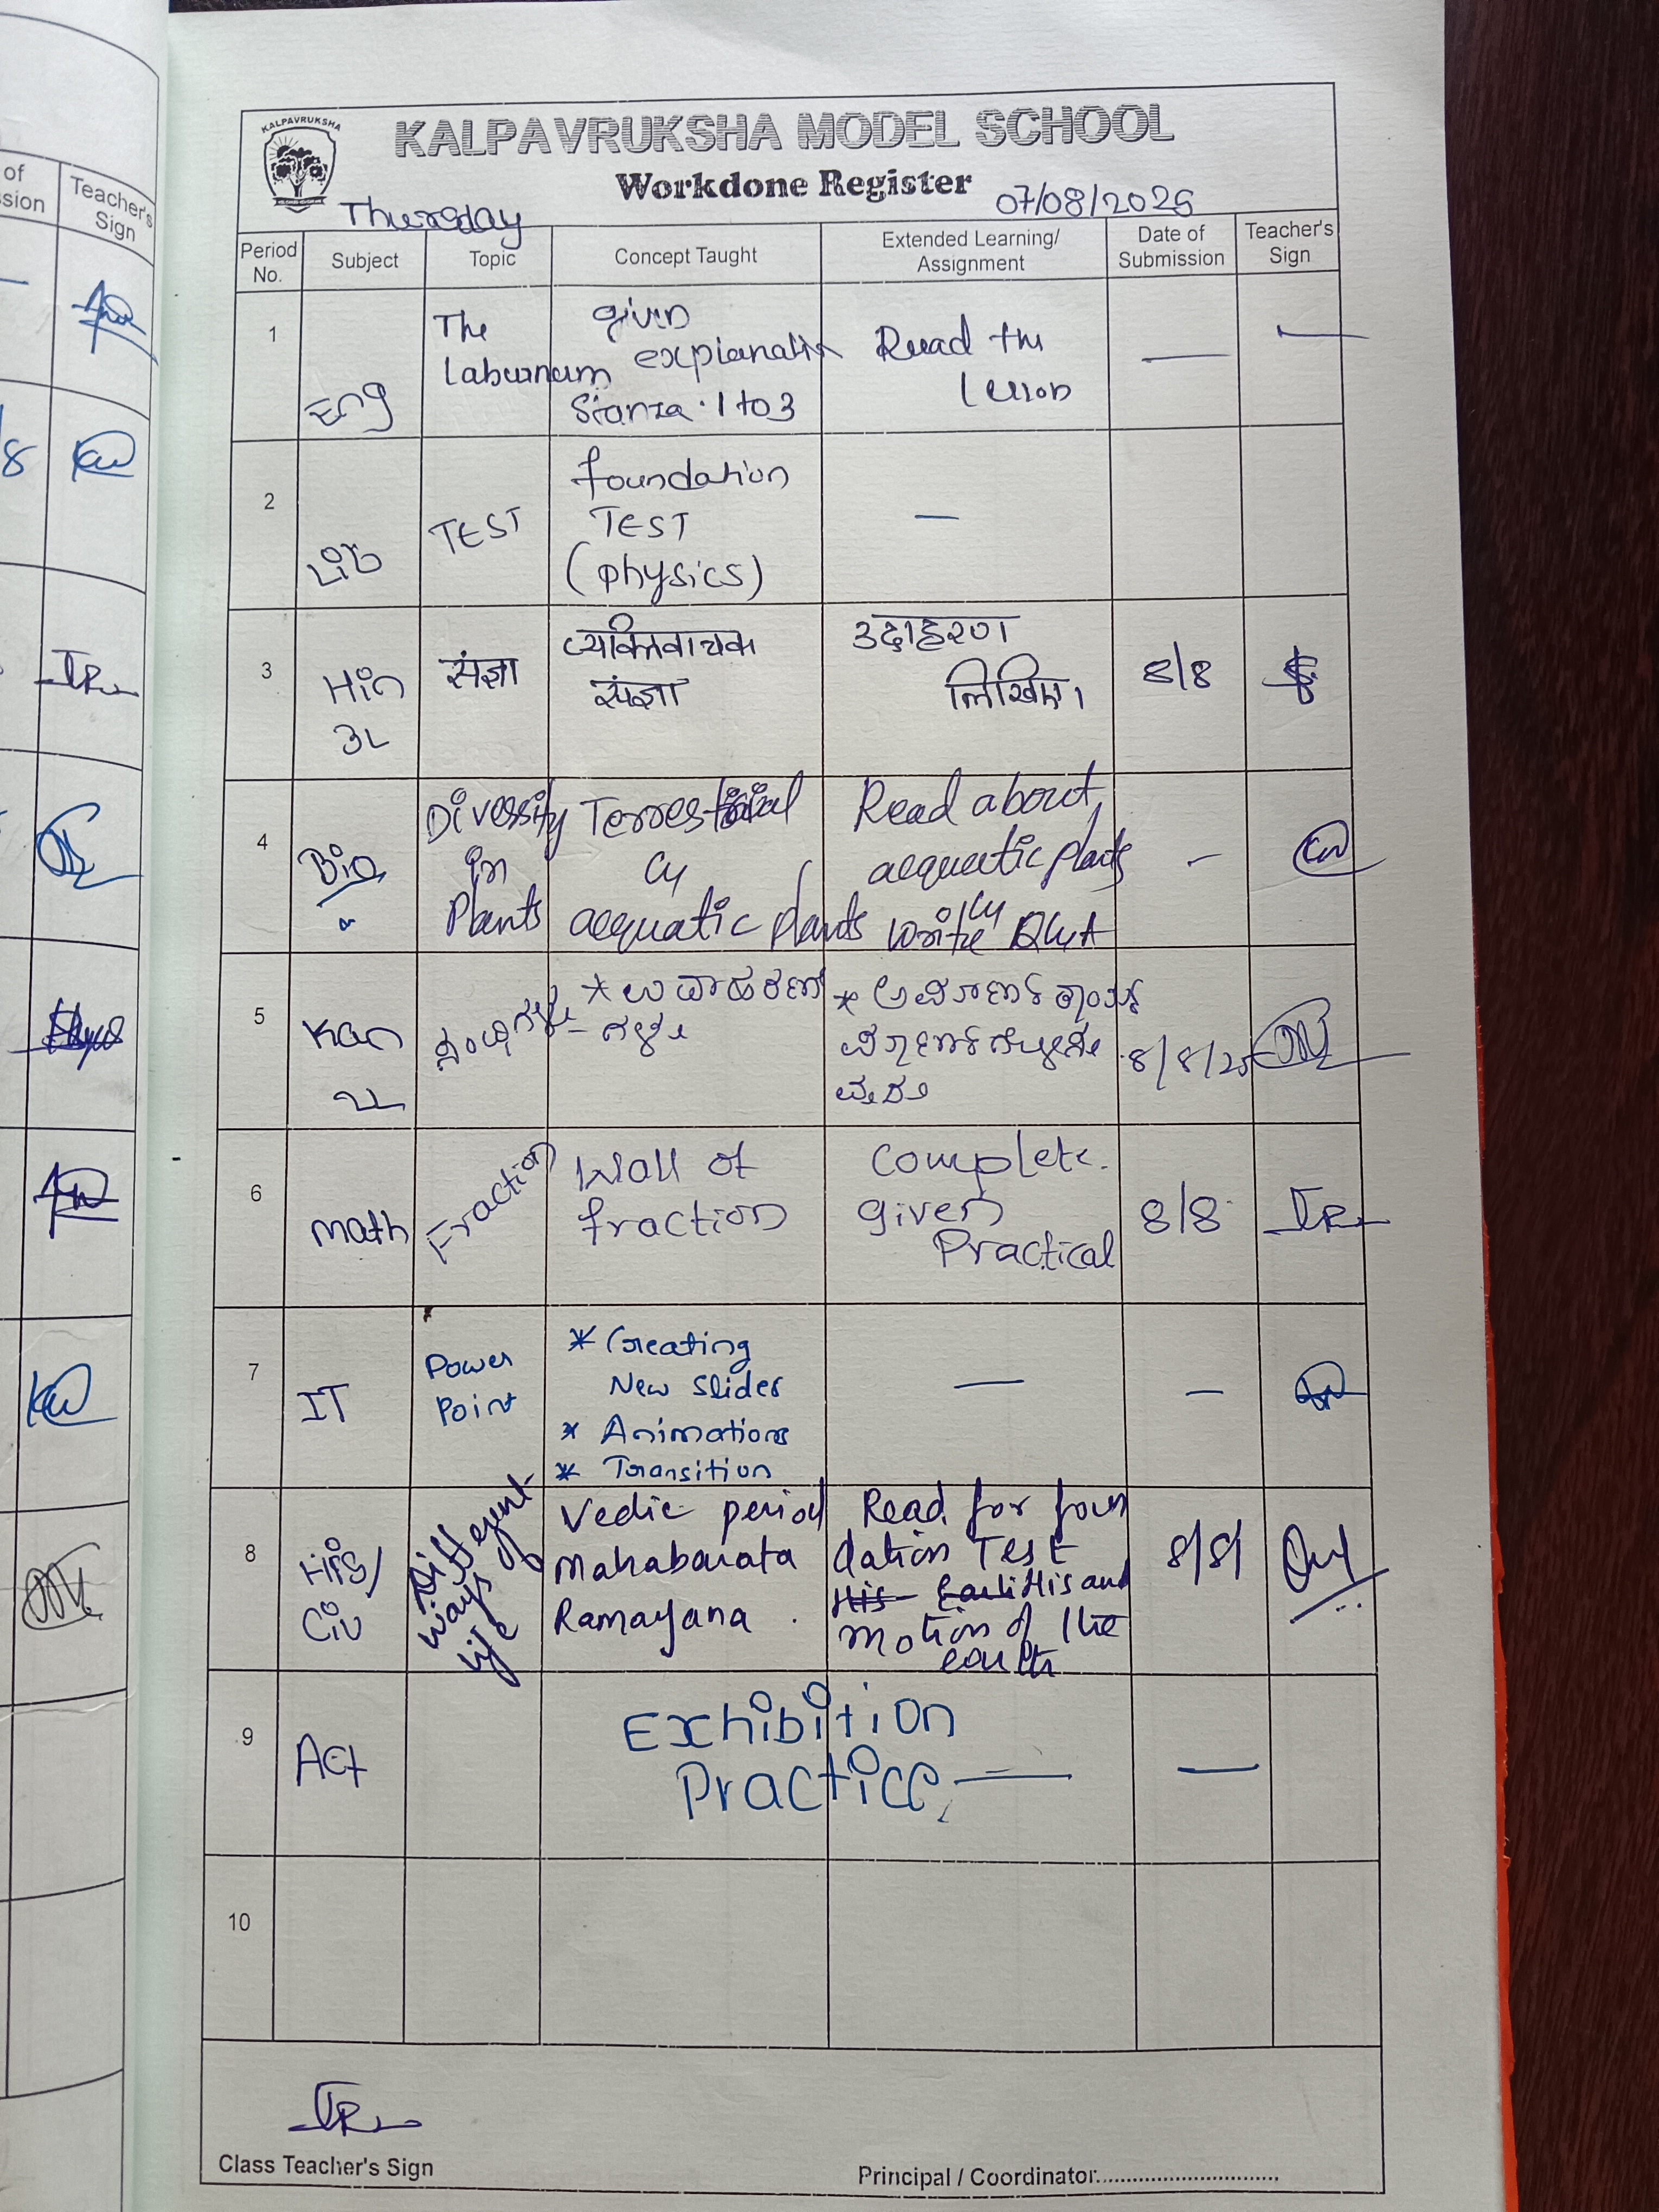 of
ssion
Teacher's
Sign
/8
KALPAVRUKSHA
KALPAVRUKSHA MODEL SCHOOL
Workdone Register
Thursday
07/08/2025
Period No. Subject Topic Concept Taught Extended Learning/ Assignment Date of Submission Teacher's Sign
1 Eng The Laburnum given explanation Stanza . 1 to 3 Read the lesson —
2 Lib TEST foundation TEST (physics) —
3 Hin 3L संज्ञा व्यक्तिवाचक संज्ञा उदाहरण लिखिए। 8/8
4 Bio Diversity in Plants Terrestrial & acquatic plants Read about acquatic plants & write Q&A —
5 Kan 2L * ಉದಾಹರಣೆ - ಗಳು * 8/8/25
6 Math Fraction Wall of fraction Complete given Practical 8/8
7 IT Power Point * Creating New Slides * Animations * Transition — —
8 His/ Civ Different ways of life Vedic period Mahabarata Ramayana . Read for foun dation Test His and motion of the earth 8/8/
9 Act Exhibition Practice — —
10
Class Teacher's Sign
Principal / Coordinator..............................